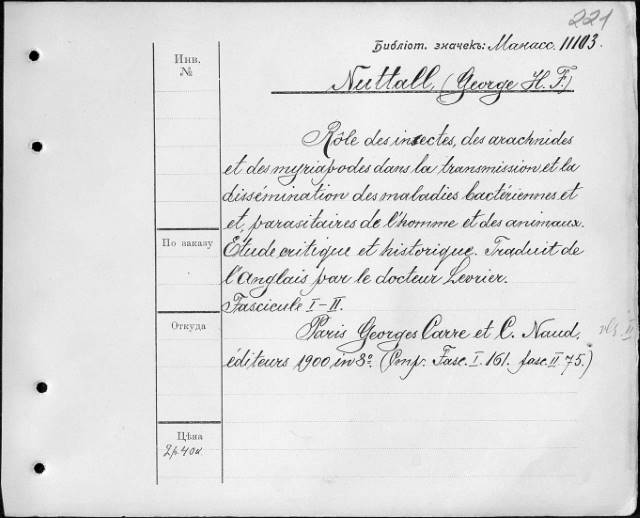 221
Библіот. значекъ: Манасс. 11103.
Инв.
№
Nuttall, (George H. F.)
Rôle des insectes, des arachnides
et des myriapodes dans la transmission et la
dissémination des maladies bactériennes et
et parasitaires de l'homme et des animaux.
По заказу
Étude critique et historique. Traduit de
l'Anglais par le docteur Levrier.
Fascicule I–II.
Откуда
Paris Georges Carre et C. Naud,
éditeurs 1900 in 8º. (Стр. Fasc. I. 161. fasc. II 75.)
Цѣна
2р. 40к.